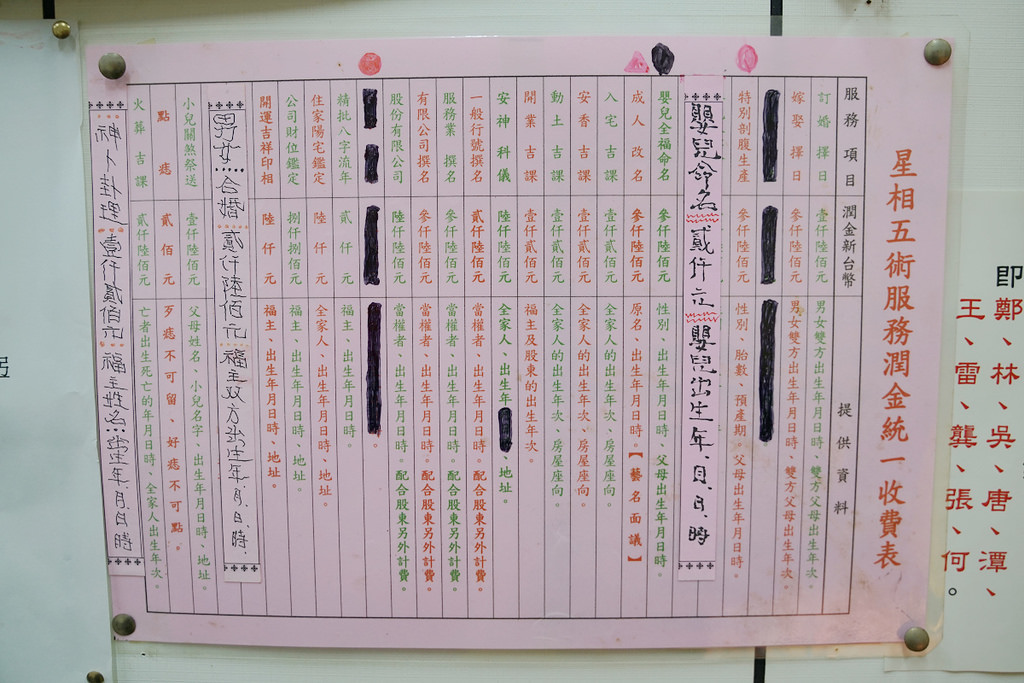 星相五術服務潤金統一收費表
服務項目 潤金新台幣 提供資料
訂婚擇日 壹仟陸佰元 男女雙方出生年月日時、雙方父母出生年次。
嫁娶擇日 參仟陸佰元 男女雙方出生年月日時、雙方父母出生年次。
特別剖腹生產 參仟陸佰元 性別、胎數、預產期。父母出生年月日時。
嬰兒命名 貳仟元 嬰兒出生年、月、日、時
嬰兒全福命名 參仟陸佰元 性別、出生年月日時、父母出生年月日時。
成人改名 參仟陸佰元 原名、出生年月日時。【藝名面議】
入宅吉課 壹仟貳佰元 全家人的出生年次、房屋座向。
安香吉課 壹仟貳佰元 全家人的出生年次、房屋座向。
動土吉課 壹仟貳佰元 全家人的出生年次、房屋座向。
開業吉課 壹仟貳佰元 福主及股東的出生年次。
安神科儀 陸仟陸佰元 全家人、出生年、地址。
一般行號撰名 貳仟陸佰元 當權者、出生年月日時。配合股東另外計費。
服務業撰名 參仟陸佰元 當權者、出生年月日時。配合股東另外計費。
有限公司撰名 參仟陸佰元 當權者、出生年月日時。配合股東另外計費。
股份有限公司 陸仟陸佰元 當權者、出生年月日時。配合股東另外計費。
精批八字流年 貳仟元 福主、出生年月日時。
住家陽宅鑑定 陸仟元 全家人、出生年月日時、地址。
公司財位鑑定 捌仟捌佰元 福主、出生年月日時、地址。
開運吉祥印相 陸仟元 福主、出生年月日時、地址。
男女合婚 貳仟陸佰元 福主双方出生年、月、日、時、
小兒關煞祭送 壹仟陸佰元 父母姓名、小兒名字、出生年月日時、地址。
點痣 貳佰元 歹痣不可留、好痣不可點。
火葬吉課 貳仟陸佰元 亡者出生死亡的年月日時、全家人出生年次。
神卜卦理 壹仟貳佰元 福主姓名 出生年、月、日、時
即鄭、林、吳、唐、潭、
王、雷、龔、張、何。